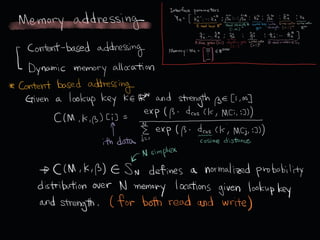 Memory addressing
Interface parameters
Content-based addressing
Dynamic memory allocation
* Content based addressing
Given a lookup key k ∈ ℝᵂ and strength β ∈ [1, ∞]
C(M, k, β)[i] = exp(β · d_cos(k, M[i, :])) / Σ exp(β · d_cos(k, M[j, :]))
ith data
cosine distance
N simplex
→ C(M, k, β) ∈ S_N defines a normalized probability
distribution over N memory locations given lookup key
and strength. (for both read and write)